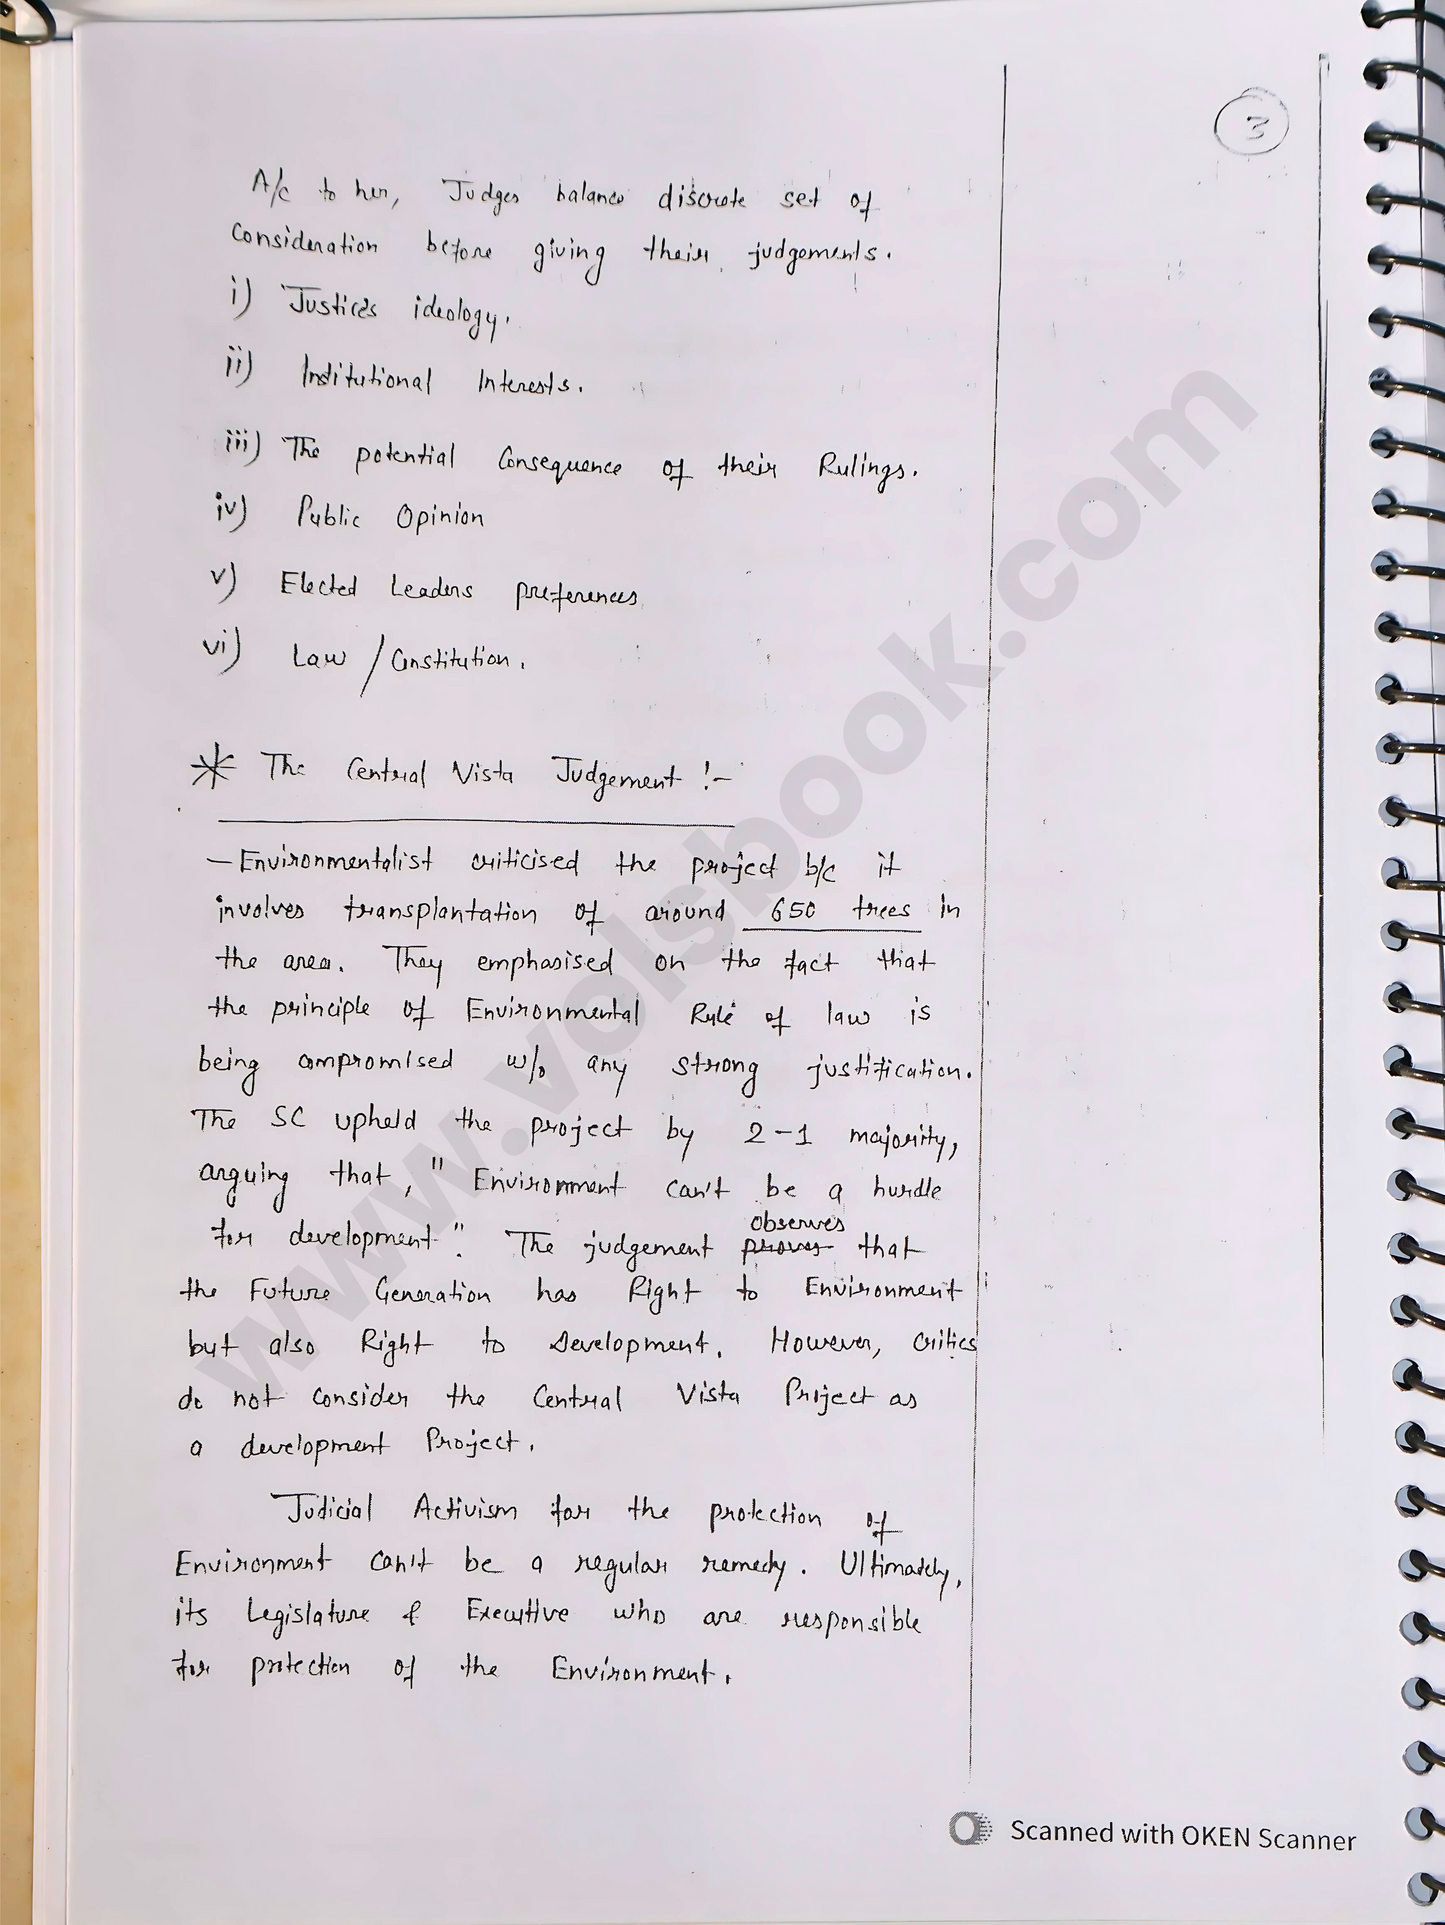 3
A/c to her, Judges balance discrete set of
Consideration before giving their judgements.
i) Justices ideology.
ii) Institutional Interests.
iii) The potential Consequence of their Rulings.
iv) Public Opinion
v) Elected Leaders preferences
vi) Law / Constitution.
* The Central Vista Judgement :-
- Environmentalist criticised the project b/c it
involves transplantation of around 650 trees in
the area. They emphasised on the fact that
the principle of Environmental Rule of law is
being compromised w/o any strong justification.
The SC upheld the project by 2-1 majority,
arguing that, "Environment can't be a hurdle
for development". The judgement proves observes that
the Future Generation has Right to Environment
but also Right to Development. However, critics
do not consider the Central Vista Project as
a development Project.
Judicial Activism for the protection of
Environment can't be a regular remedy. Ultimately,
its Legislature & Executive who are responsible
for protection of the Environment.
www.volsbook.com
Scanned with OKEN Scanner